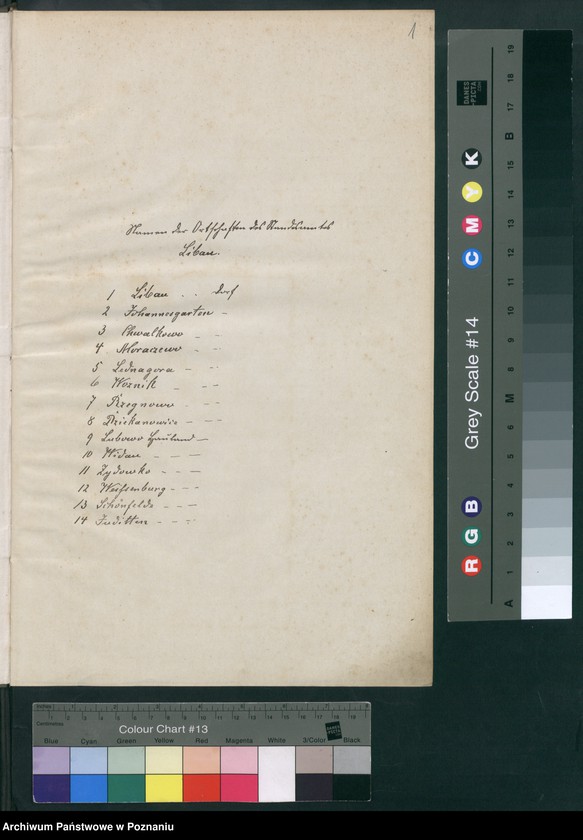 1
Namen der Ortschaften des Standesamtes
Libau.
1 Libau . . Dorf
2 Johannesgarten –
3 Chwalkowo – –
4 Moraczewo – –
5 Lednagora – –
6 Woznik – –
7 Rzegnowo – –
8 Dziekanowice – –
9 Lubowo Hauland –
10 Widau – – –
11 Zydowko – –
12 Weissenburg – – –
13 Schönfelde – – –
14 Juditten – – –
Grey Scale #14
R G B
C M Y K
A 1 2 3 4 5 6 M 8 9 10 11 12 13 14 15 B 17 18 19
DANES
-PICTA
.COM
Colour Chart #13
Blue Cyan Green Yellow Red Magenta White 3/Color Black
Archiwum Państwowe w Poznaniu